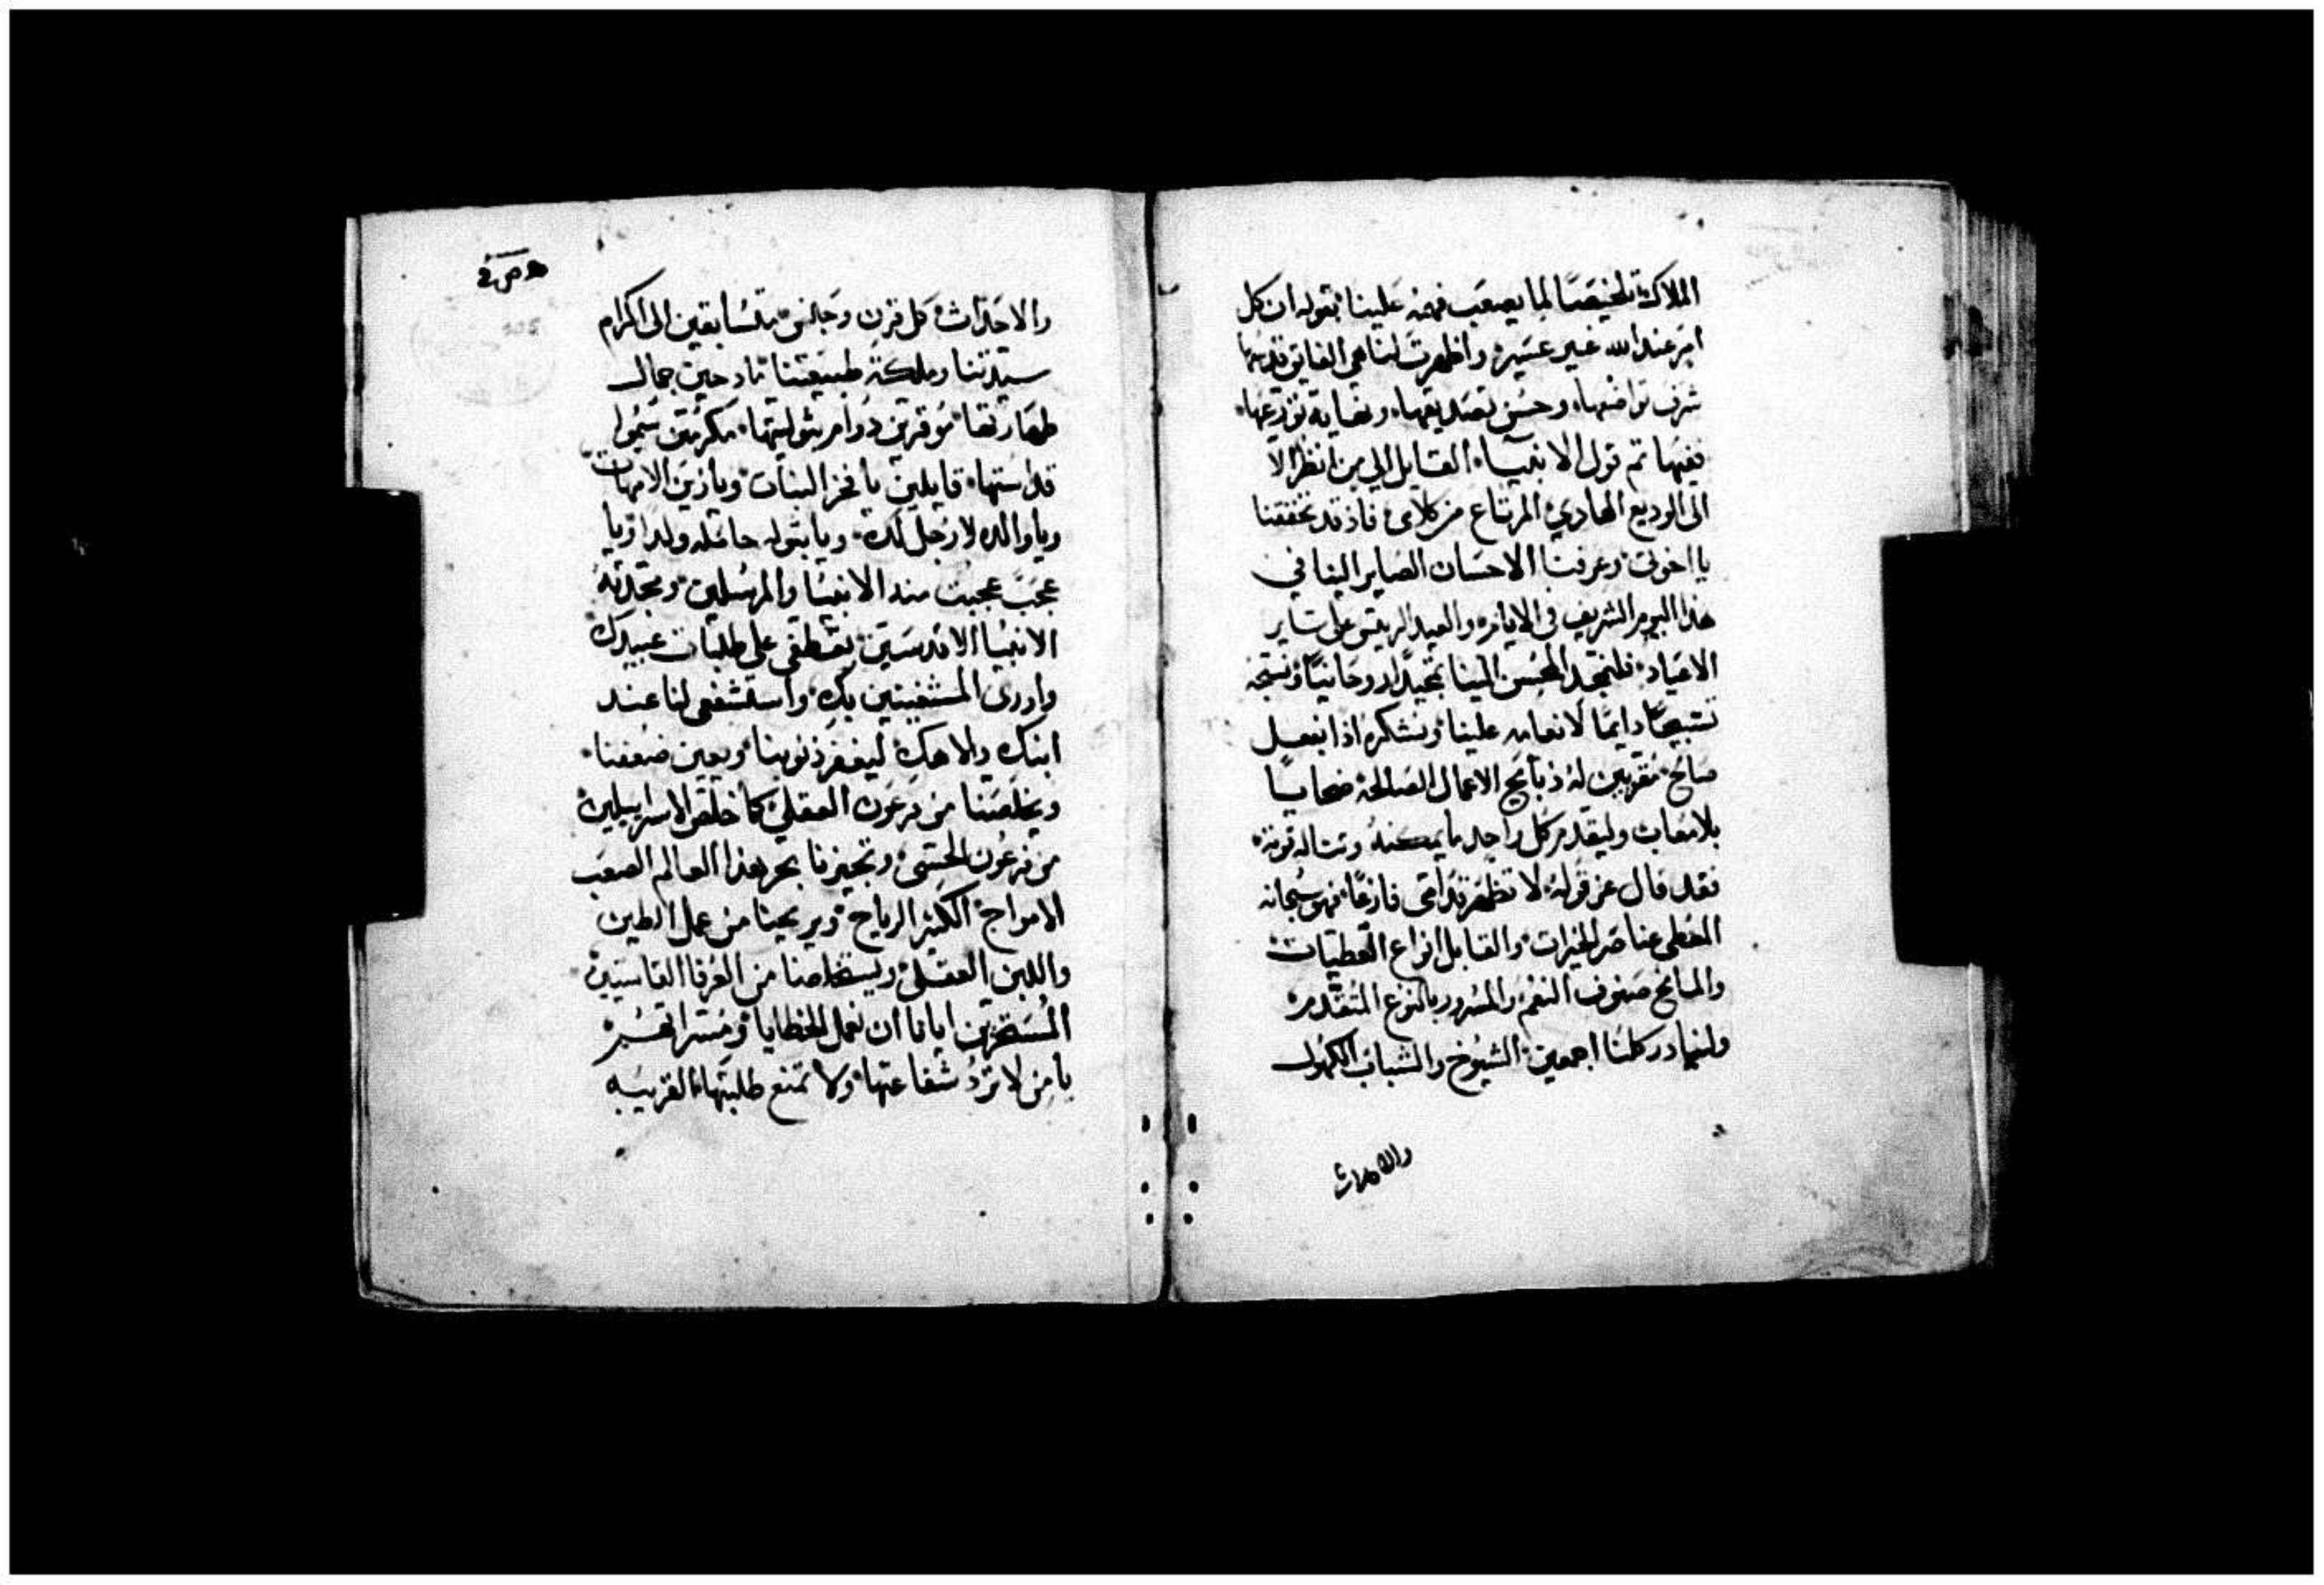 الملاك تلخيصًا لما يصعب فهمه علينا بقوله ان كل
امر عند الله غير عسير واظهرت لنا هي الفايق قدسها
شرف تواضعها وحسن تصديقها ونهاية تورعها
ففيها تم قول الانبياء القايل الي من انظر الا
الى الوديع الهادي المرتاع من كلامي فاذ قد تحققنا
يا اخوتي وعرفنا الاحسان الصاير الينا في
هذا اليوم الشريف في الايام والعيد الريس على ساير
الاعياد فلنمجد المحسن الينا تمجيدا روحانيًا ونسبحه
تسبيحًا دايمًا لانعامه علينا ونشكره اذا بفعل
صالح مقربين له ذبايح الاعمال الصالحة ضحايا
بلا معاب وليقدم كل واحد ما يمكنه وتناله قوته
فقد قال عز قوله لا تظهر قدامي فارغًا فهو سبحانه
المعطي عناصر الخيرات والقابل انواع العطيات
والمانح صنوف النعم والمسرور بالنوع المتقدم
ولنبادر كلنا اجمعين الشيوخ والشباب الكهول
والاحداث
والاحداث كل قرن وجالس متسابقين الى اكرام
سيدتنا وملكة طبيعتنا مادحين جمال
طهارتها موقرين دوام بتوليتها مكرمين سمو
قداستها قايلين يا فخر البنات ويا زين الامهات
ويا والده لا رجل لك ويا بتوله حامله ولدا ويا
عجب عجبت منه الانبيا والمرسلين ومجدته
الانبيا الاقدسين تعطفي على طلبات عبيدك
واردي المستغيثين بك واستشفعي لنا عند
ابنك والاهك ليغفر ذنوبنا ويعين ضعفنا
ويخلصنا من فرعون العقلي كما خلص الاسراييليين
من فرعون الحسي وتجيزنا بحر هذا العالم الصعب
الامواج الكثير الرياح ويريحنا من عمل الطين
واللبن العقلي ويستخلصنا من العرفا القاسيين
المسخرين ايانا ان نعمل الخطايا
يا من لا ترد شفاعتها ولا تمنع طلبتها القريبه